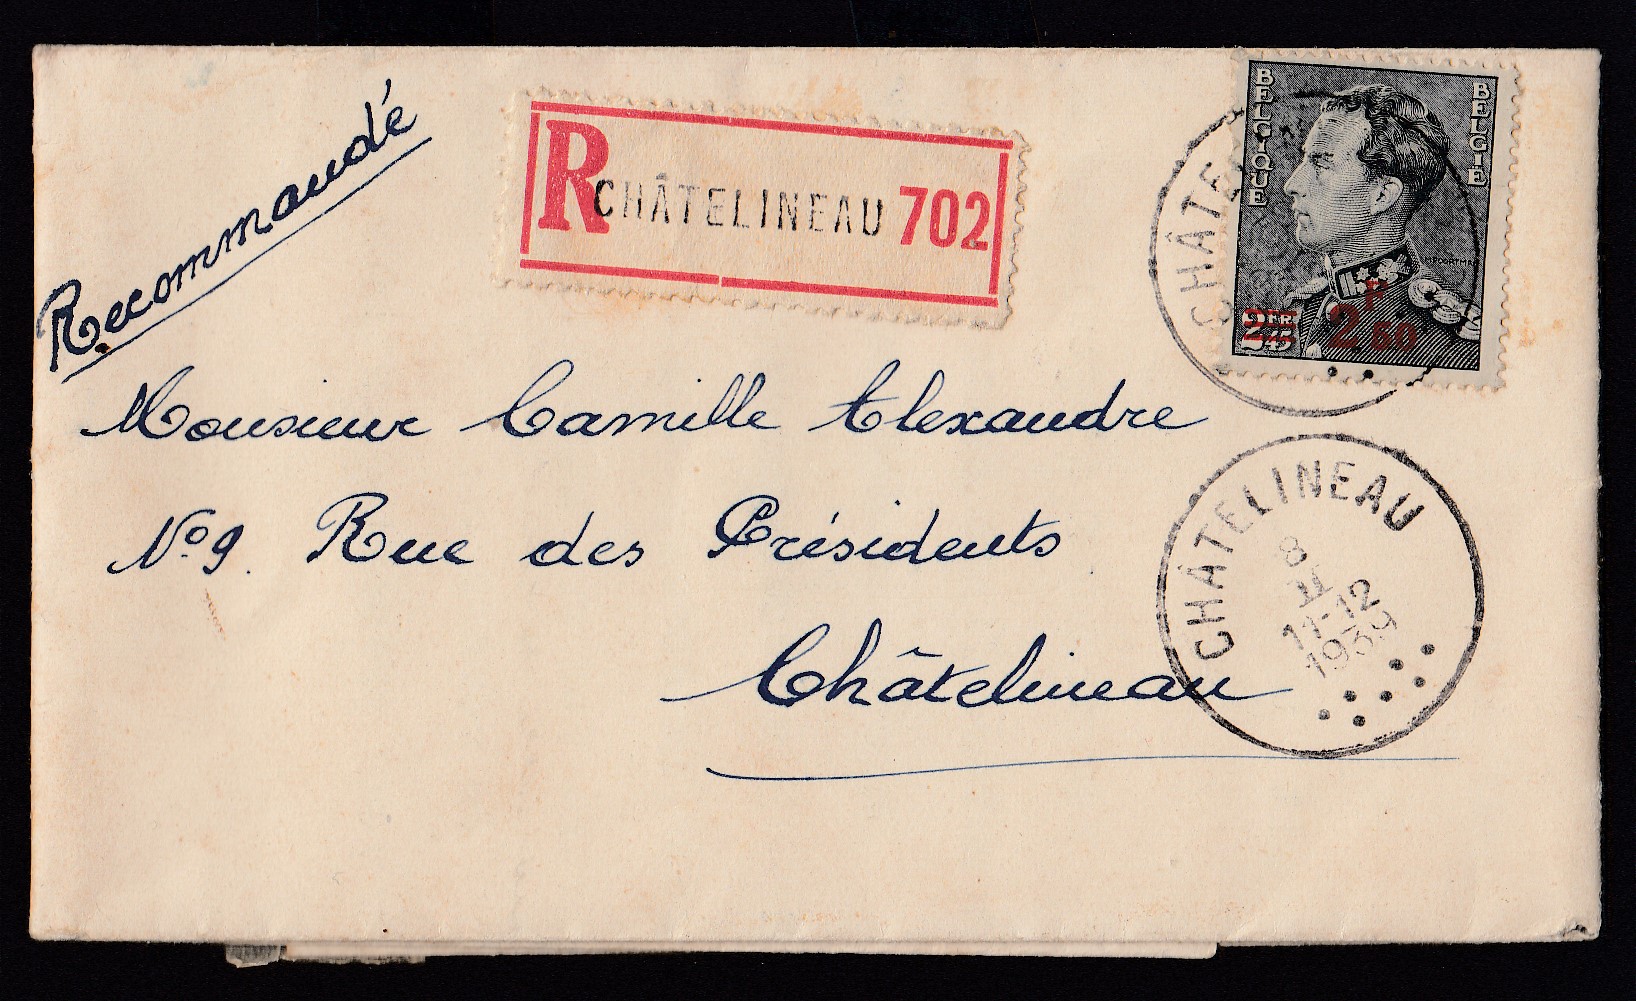 Recommandé
R CHÂTELINEAU 702
BELGIQUE
BELGIË
2FR45
F
2 50
CHÂTE
Monsieur Camille Alexandre
No 9. Rue des Présidents
Châtelineau
CHÂTELINEAU
8
11-12
1939